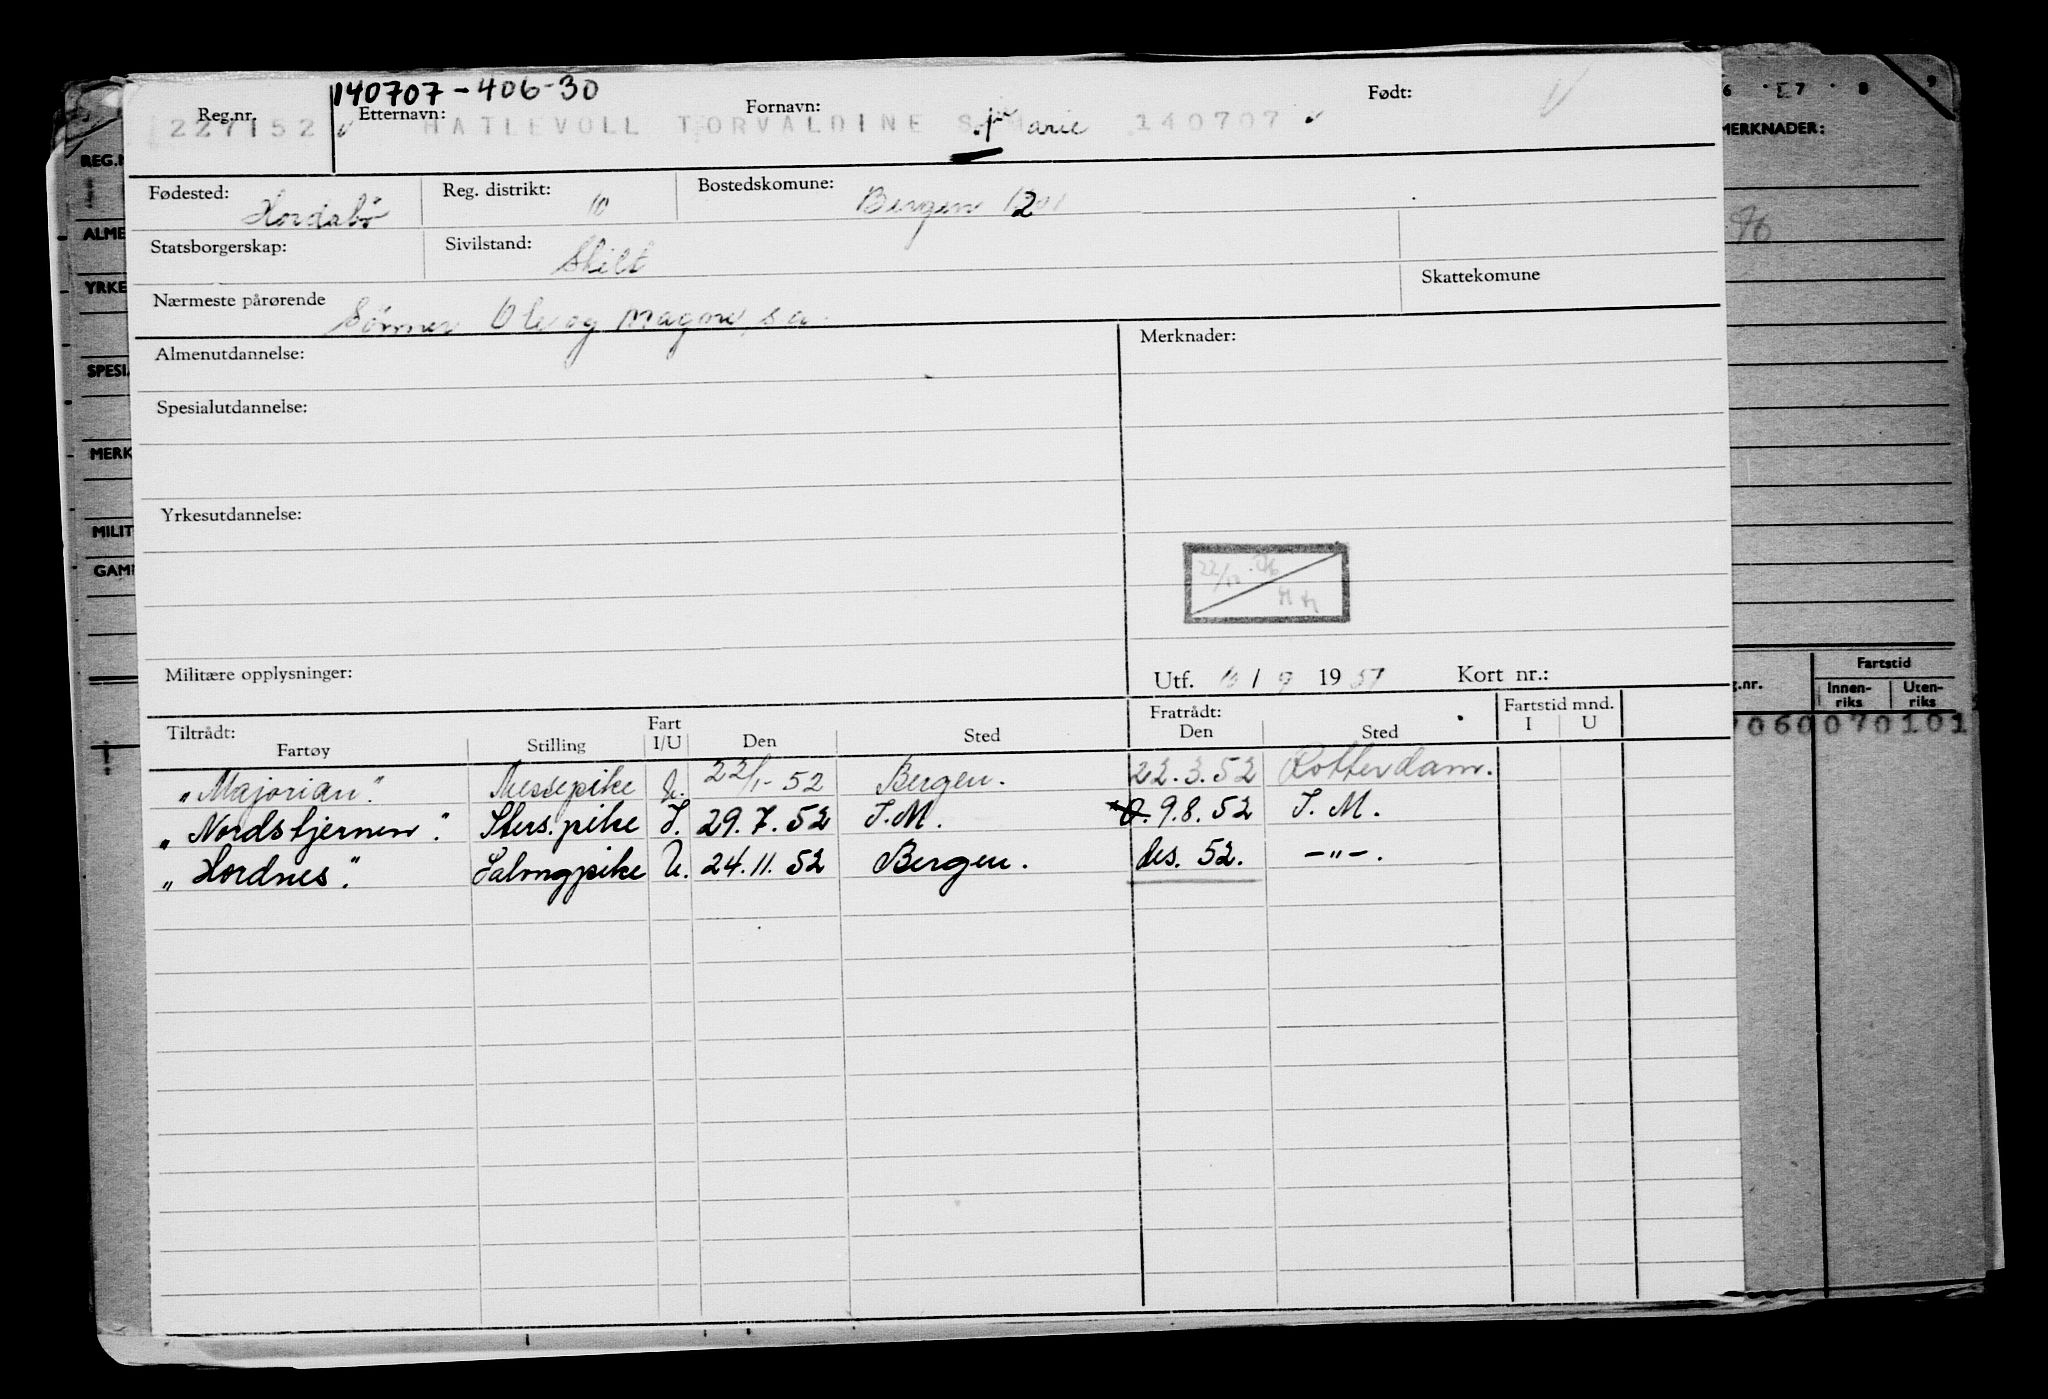 140707-406-30
Reg.nr. Etternavn: Fornavn: Født:
227152 HATLEVOLL TORVALDINE S Marie 140707
Fødested: Hordabø Reg. distrikt: 10 Bostedskomune: Bergen 1201
Statsborgerskap: Sivilstand: Skilt
Skattekomune
Nærmeste pårørende Sønner Ole og Magne, s a.
Almenutdannelse: Merknader:
Spesialutdannelse:
Yrkesutdannelse:
Militære opplysninger: Utf. 10 / 9 1951 Kort nr.:
Tiltrådt: Fratrådt: Fartstid mnd.
Fartøy Stilling Fart I/U Den Sted Den Sted I U
"Majorian". Messepike U. 22/1-52 Bergen. 22.3.52 Rotterdam.
"Nordstjernen". Sters. pike I. 29.7.52 I.M. 9.8.52 I.M.
"Hordnes". Salongpike U. 24.11.52 Bergen. des. 52. -"-.
6 7 8 9
MERKNADER:
REG.N
ALME
YRKE
SPESI
MERK
MILIT
GAM
g.nr. Fartstid
Innen-riks Uten-riks
7060070101